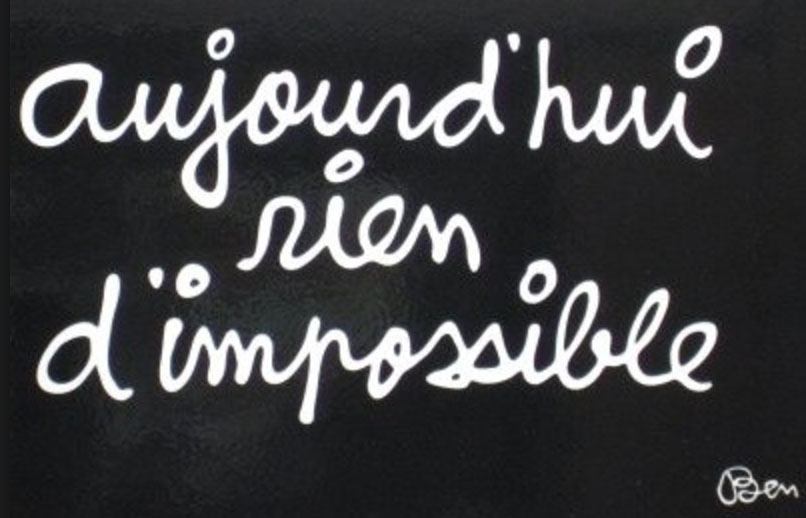 aujourd'hui
rien
d'impossible
Ben